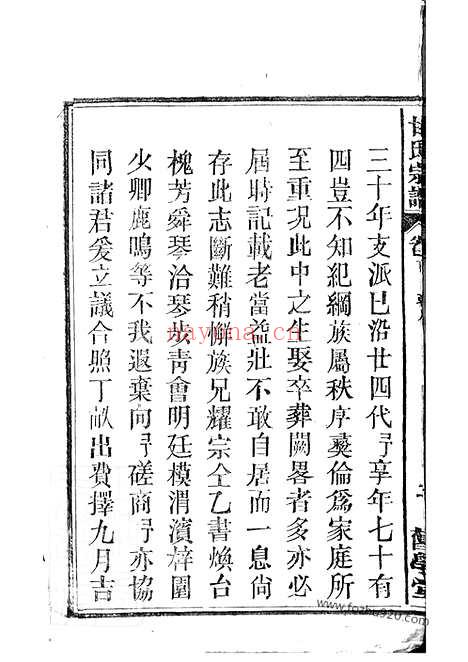 氏宗譜
三十年支派已沿廿四代予享年七十有
四豈不知紀綱族屬秩序彝倫爲家庭所
至重况此中之生娶卒葬闕畧者多亦必
屆時記載老當益壯不敢自居而一息尙
存此志斷難稍懈族兄耀宗仝乙書煥台
槐芳舜琴洽琴族靑會明廷模渭濱梓園
少卿鹿鳴等不我遐棄向予磋商予亦協
同諸君爰立議合照丁畝出費擇九月吉
nayona.cn
www.fozhu920.com